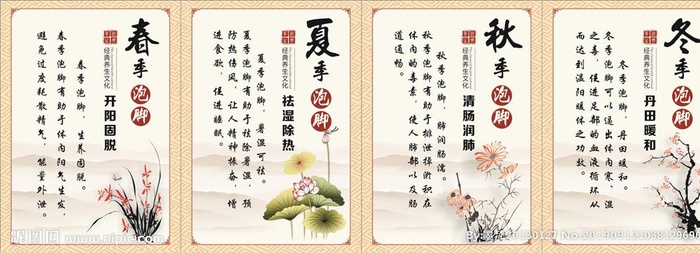 春季
泡脚
经典养生文化
开阳固脱
春季泡脚，生养固脱。
春季泡脚有助于体内阳气生发，
避免过度耗散精气，能量外泄。
夏季
泡脚
经典养生文化
祛湿除热
夏季泡脚，暑湿可祛。
夏季泡脚有助于祛除暑湿，预
防热伤风，让人精神振奋，增
进食欲，促进睡眠。
秋季
泡脚
经典养生文化
清肠润肺
秋季泡脚，肺润肠濡。
秋季泡脚有助于排泄掉淤积在
体内的毒素，使人肺部以及肠
道通畅。
冬季
泡脚
经典养生文化
丹田暖和
冬季泡脚，丹田暖和。
冬季泡脚可以通出体内寒、湿
之毒，促进足部的血液循环从
而达到温阳暖体之功效。
昵图网
www.nipic.com